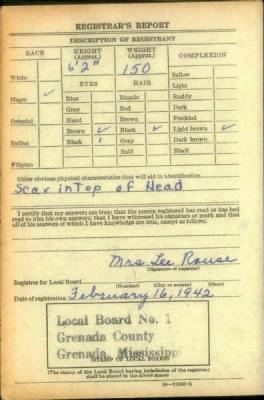 REGISTRAR'S REPORT
DESCRIPTION OF REGISTRANT
RACE
HEIGHT (Approx.)
WEIGHT (Approx.)
COMPLEXION
6'2"
150
White
Sallow
EYES
HAIR
Light
Negro ✓
Blue
Blonde
Ruddy
Gray
Red
Dark
Oriental
Hazel
Brown
Freckled
Brown ✓
Black ✓
Light brown ✓
Indian
Black
Gray
Dark brown
Bald
Black
Filipino
Other obvious physical characteristics that will aid in identification
Scar in Top of Head
I certify that my answers are true; that the person registered has read or has had
read to him his own answers; that I have witnessed his signature or mark and that
all of his answers of which I have knowledge are true, except as follows:
Mrs. Lee Rouse
(Signature of registrar)
Registrar for Local Board
(Number) (City or county) (State)
Date of registration February 16, 1942
Local Board No. 1
Grenada County
Grenada, Mississippi
(STAMP OF LOCAL BOARD)
(The stamp of the Local Board having jurisdiction of the registrant
shall be placed in the above space)